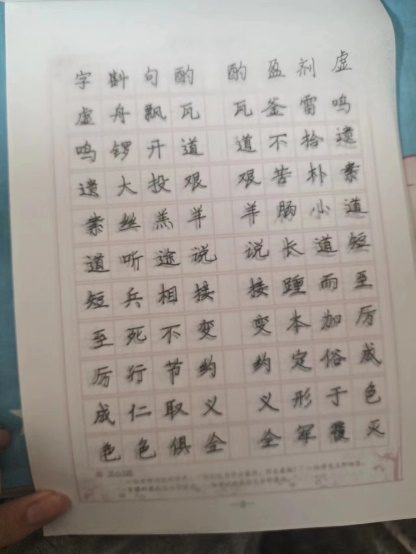 字斟句酌 酌盈剂虚
虚舟飘瓦 瓦釜雷鸣
鸣锣开道 道不拾遗
遗大投艰 艰苦朴素
素丝羔羊 羊肠小道
道听途说 说长道短
短兵相接 接踵而至
至死不变 变本加厉
厉行节约 约定俗成
成仁取义 义形于色
色色俱全 全军覆灭